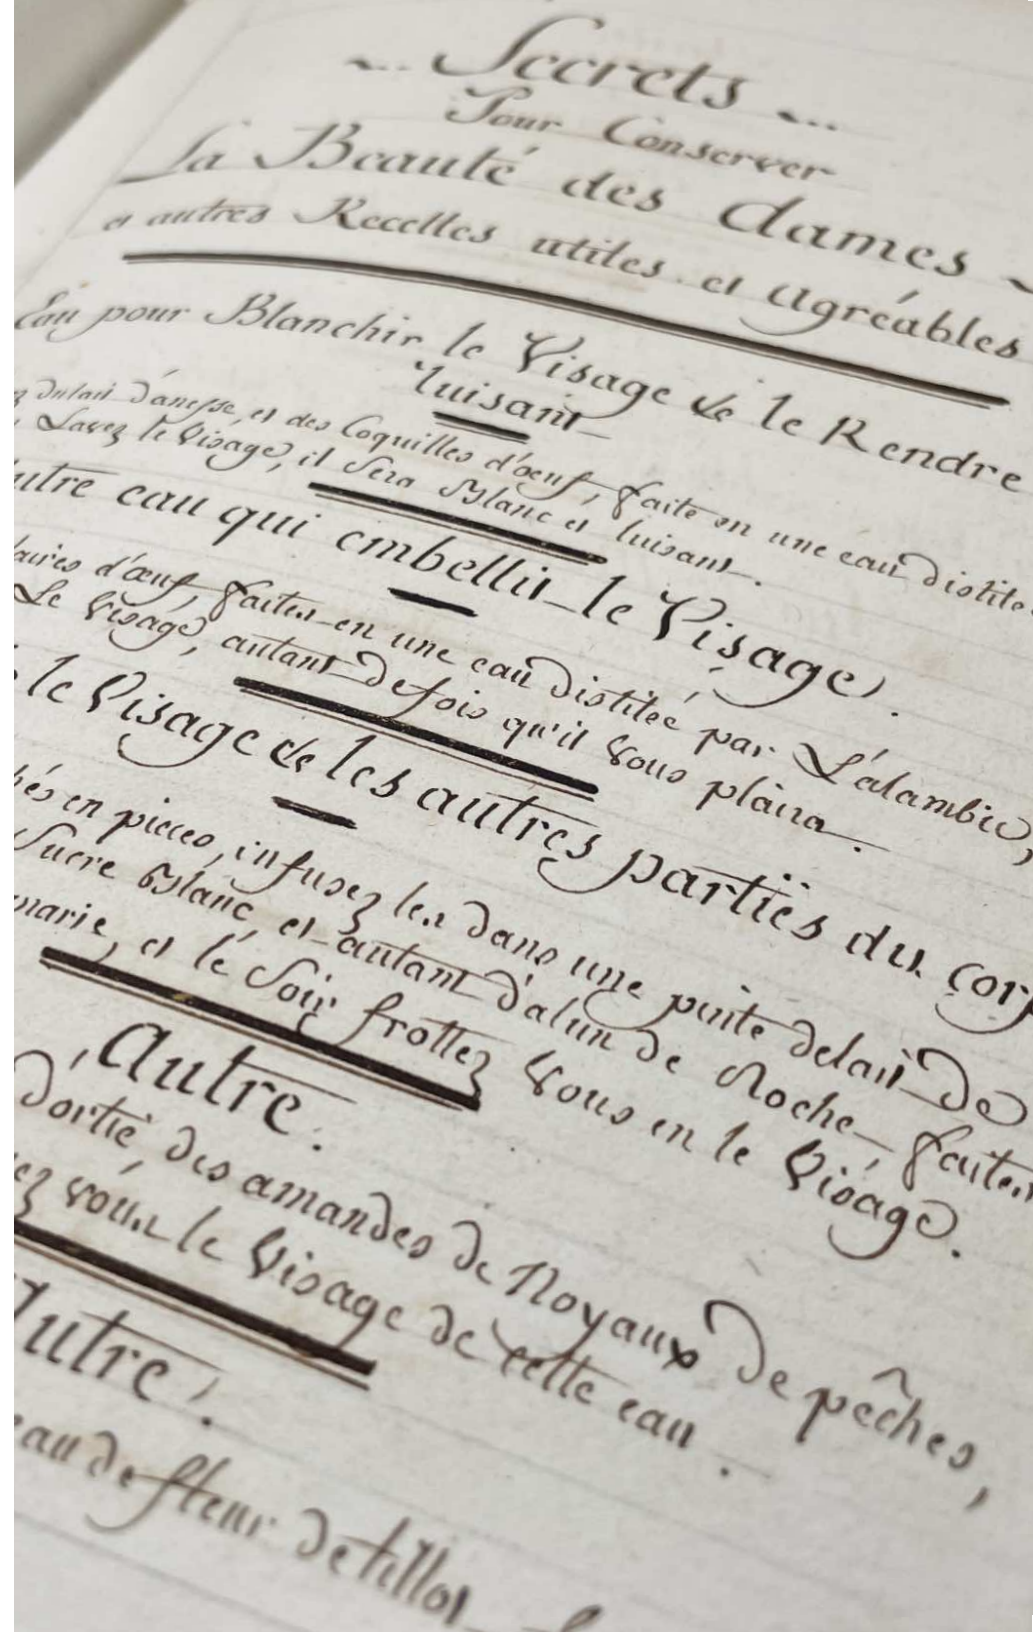 Secrets
Pour Conserver
La Beauté des dames
et autres Recettes utiles et agréables
Eau pour Blanchir le Visage & le Rendre
luisant
dulait d'anesse, et des Coquilles d'œuf, faite en une eau distilé
Lavez le Visage, il sera Blanc et luisant.
autre eau qui embellit le Visage.
d'œuf, faites en une eau distileé par L'alambic,
Le Visage, autant de fois qu'il vous plaira.
le Visage & les autres partiës du corp
en pieces, infusez les dans une pinte delait De
Sucre Blanc, et autant d'alun de Roche, faites
marie, et le Soir frottez vous en le Visage.
Autre.
D'ortie, des amandes de Noyaux De pêches,
ez vous le Visage de cette eau.
Autre.
eau de fleur de tillot